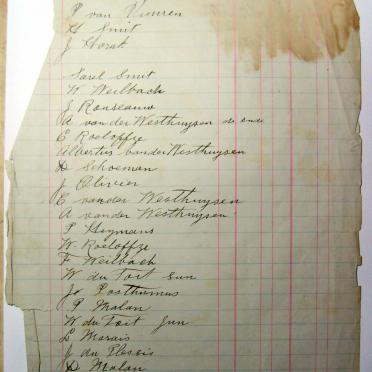 P van Vuuren
H Smit
J Horak
Sarel Smit
W Weilbach
J Rouseauw
A van der Westhuysen de oude
E Roeloffze
Albertus vander Westhuysen
D Schoeman
J Olivier
E vander Westhuysen
A vander Westhuysen
P Heymans
W Roeloffze
F Weilbach
W du Toit Sen
Js Posthumus
P Malan
W du Toit Jun
L Marais
J du Plessis
D Malan